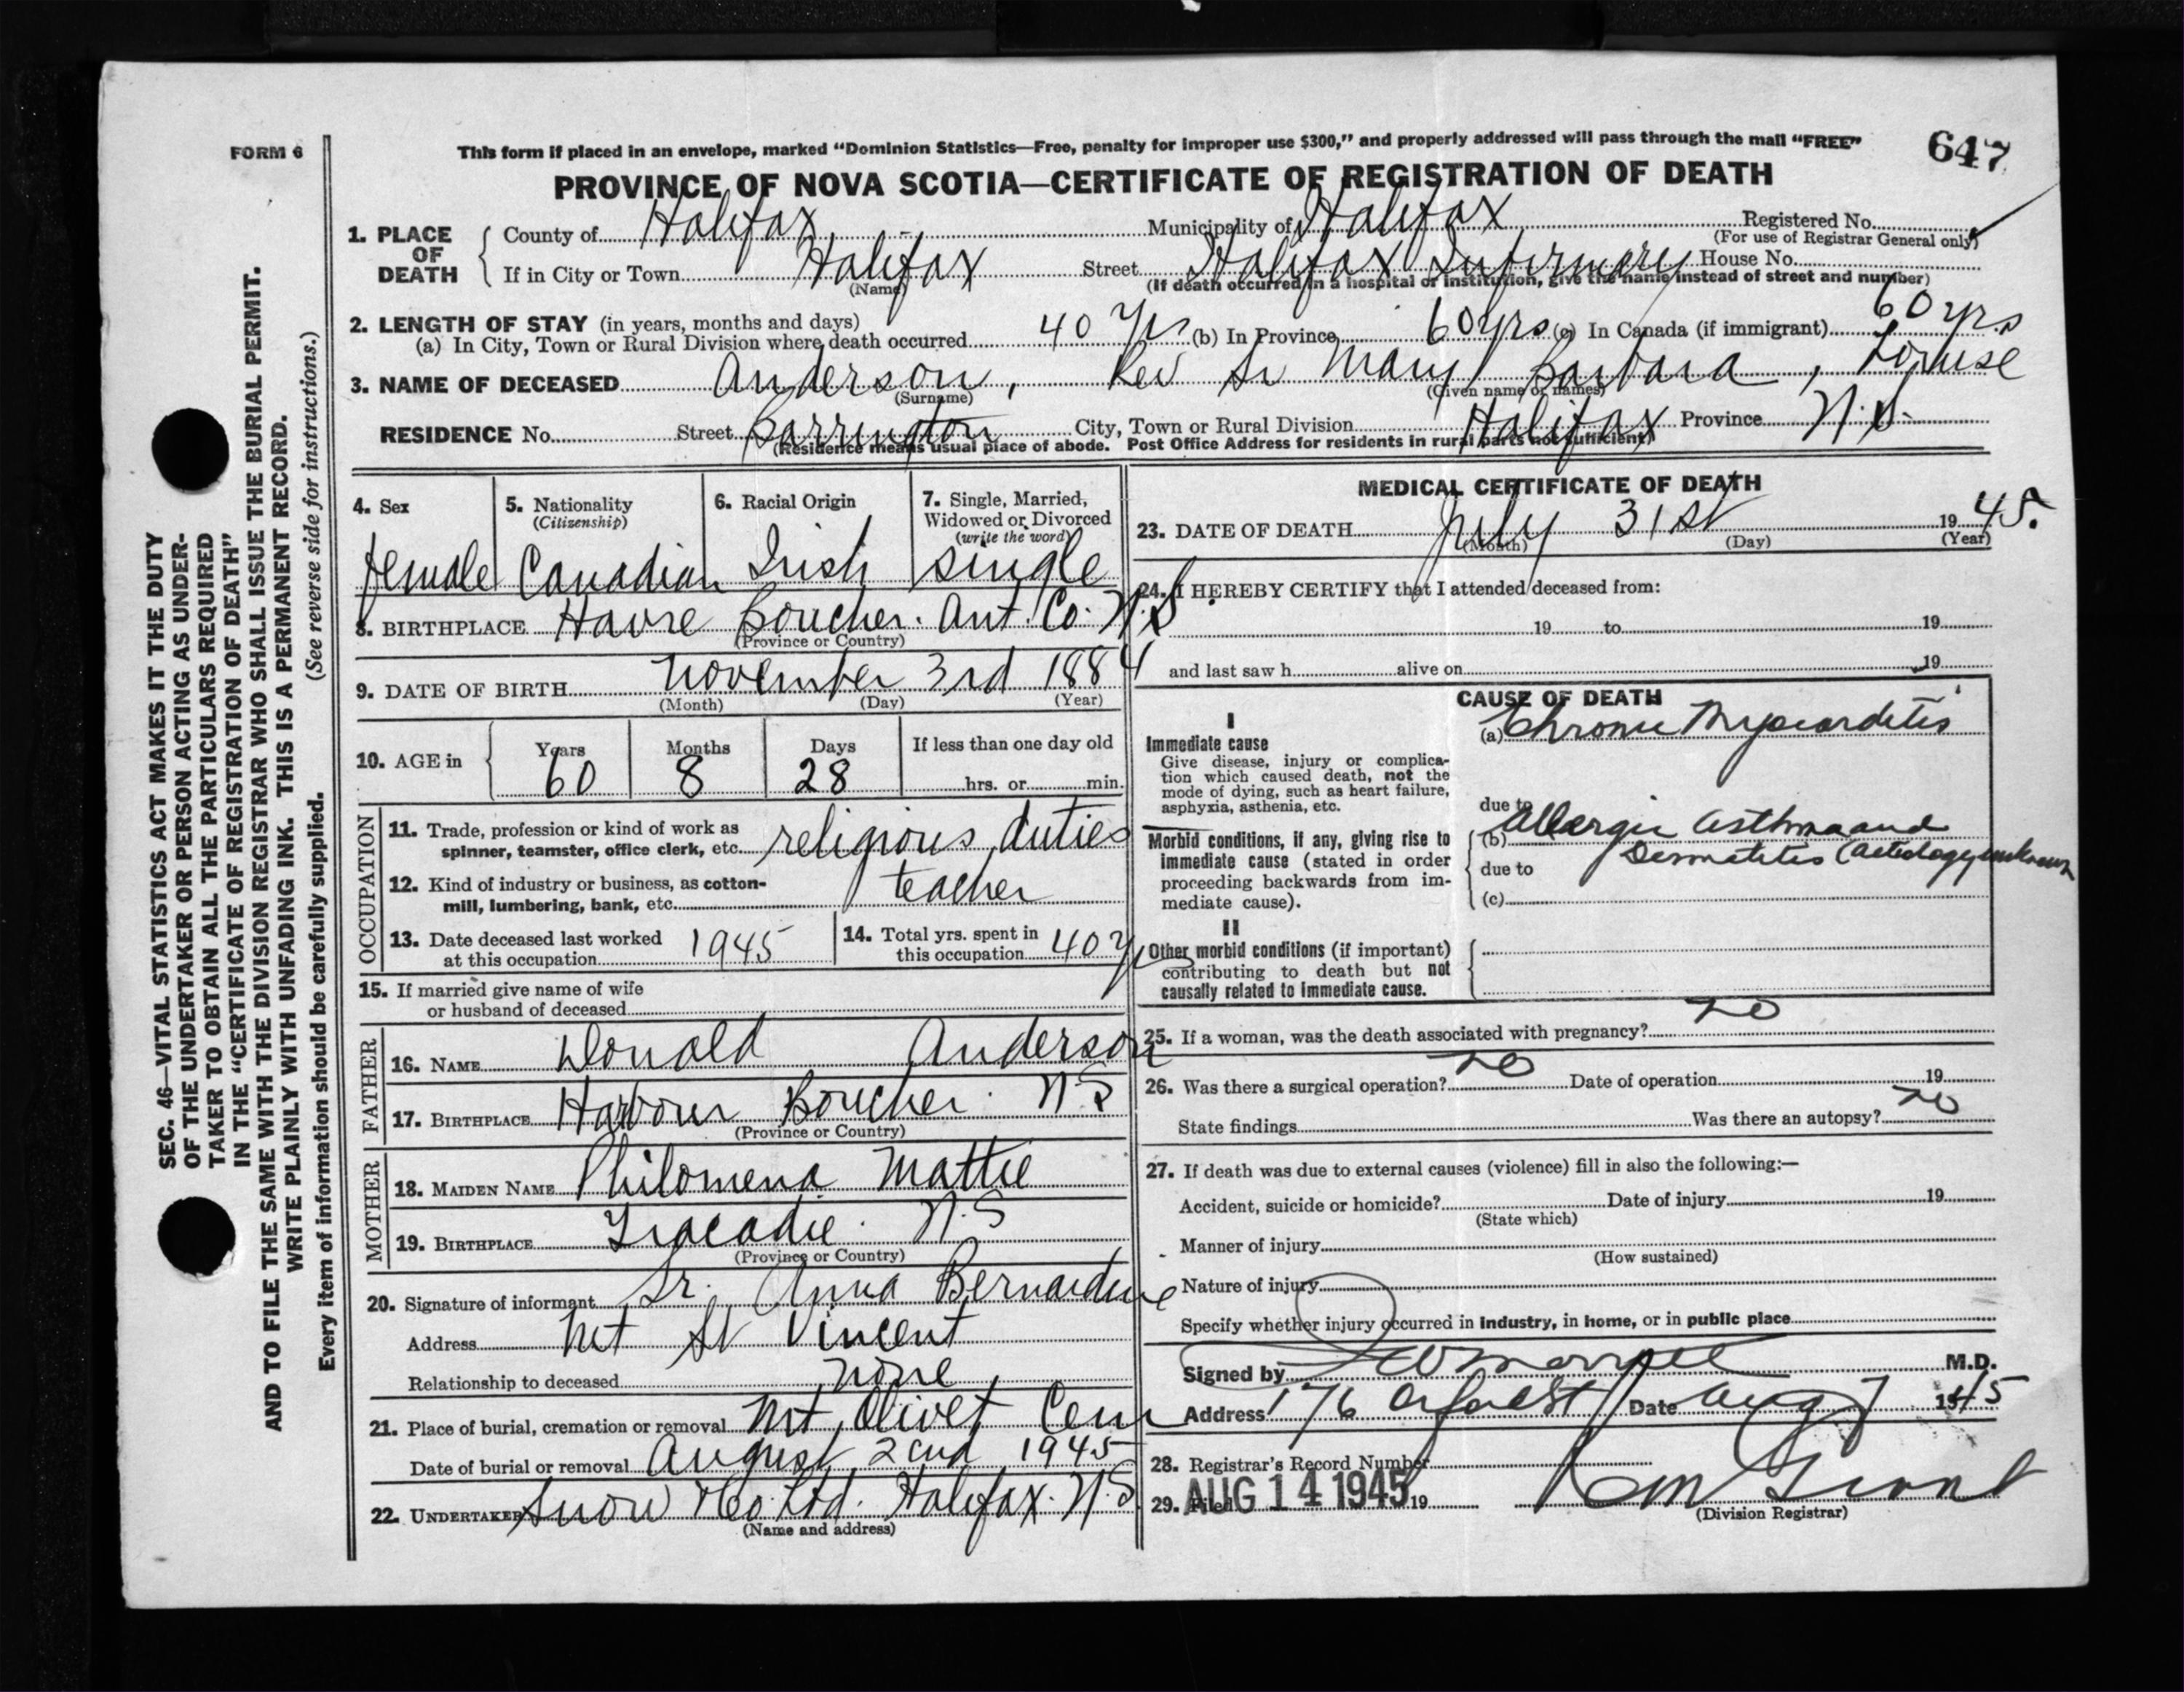 FORM 6
This form if placed in an envelope, marked "Dominion Statistics—Free, penalty for improper use $300," and properly addressed will pass through the mail "FREE"
647
PROVINCE OF NOVA SCOTIA—CERTIFICATE OF REGISTRATION OF DEATH
1. PLACE OF DEATH
County of Halifax Municipality of Halifax Registered No.
(For use of Registrar General only)
If in City or Town Halifax Street Halifax Infirmary House No.
(Name) (If death occurred in a hospital or institution, give the name instead of street and number)
2. LENGTH OF STAY (in years, months and days)
(a) In City, Town or Rural Division where death occurred 40 yrs (b) In Province 60 yrs (c) In Canada (if immigrant) 60 yrs
3. NAME OF DECEASED Anderson, Rev Sr Mary Barbara, Louise
(Surname) (Given name or names)
RESIDENCE No. Street Barrington City, Town or Rural Division Halifax Province N.S.
(Residence means usual place of abode. Post Office Address for residents in rural parts not sufficient)
4. Sex
female
5. Nationality
(Citizenship)
Canadian
6. Racial Origin
Irish
7. Single, Married,
Widowed or Divorced
(write the word)
single
8. BIRTHPLACE Havre Boucher. Ant. Co. N.S.
(Province or Country)
9. DATE OF BIRTH November 3rd 1884
(Month) (Day) (Year)
10. AGE in Years 60 Months 8 Days 28 If less than one day old
hrs. or min.
OCCUPATION
11. Trade, profession or kind of work as
spinner, teamster, office clerk, etc. religious duties
12. Kind of industry or business, as cotton-
mill, lumbering, bank, etc. teacher
13. Date deceased last worked
at this occupation 1945
14. Total yrs. spent in
this occupation 40 yrs
15. If married give name of wife
or husband of deceased
FATHER
16. NAME Donald Anderson
17. BIRTHPLACE Harbour Boucher. N.S
(Province or Country)
MOTHER
18. MAIDEN NAME Philomena Mattie
19. BIRTHPLACE Tracadie. N.S
(Province or Country)
20. Signature of informant Sr. Anna Bernardine
Address Mt St Vincent
Relationship to deceased none
21. Place of burial, cremation or removal Mt Olivet Cem
Date of burial or removal August 2cnd 1945
22. UNDERTAKER Snow & Co. Ltd. Halifax. N.S.
(Name and address)
MEDICAL CERTIFICATE OF DEATH
23. DATE OF DEATH July 31st 1945.
(Month) (Day) (Year)
24. I HEREBY CERTIFY that I attended deceased from:
19 to 19
and last saw h alive on 19
CAUSE OF DEATH
I
Immediate cause
Give disease, injury or complica-
tion which caused death, not the
mode of dying, such as heart failure,
asphyxia, asthenia, etc.
(a) Chronic Myocarditis
due to
Morbid conditions, if any, giving rise to
immediate cause (stated in order
proceeding backwards from im-
mediate cause).
(b) Allergic Asthma and
Dermatitis (aetiology unknown
due to
(c)
II
Other morbid conditions (if important)
contributing to death but not
causally related to immediate cause.
25. If a woman, was the death associated with pregnancy? no
26. Was there a surgical operation? no Date of operation 19
State findings Was there an autopsy? no
27. If death was due to external causes (violence) fill in also the following:—
Accident, suicide or homicide? Date of injury 19
(State which)
Manner of injury
(How sustained)
Nature of injury
Specify whether injury occurred in industry, in home, or in public place
Signed by M.D.
Address 176 Date Aug 7 1945
28. Registrar's Record Number
29. Filed AUG 14 1945 19
(Division Registrar)
SEC. 46—VITAL STATISTICS ACT MAKES IT THE DUTY
OF THE UNDERTAKER OR PERSON ACTING AS UNDER-
TAKER TO OBTAIN ALL THE PARTICULARS REQUIRED
IN THE "CERTIFICATE OF REGISTRATION OF DEATH"
AND TO FILE THE SAME WITH THE DIVISION REGISTRAR WHO SHALL ISSUE THE BURIAL PERMIT.
WRITE PLAINLY WITH UNFADING INK. THIS IS A PERMANENT RECORD.
Every item of information should be carefully supplied. (See reverse side for instructions.)